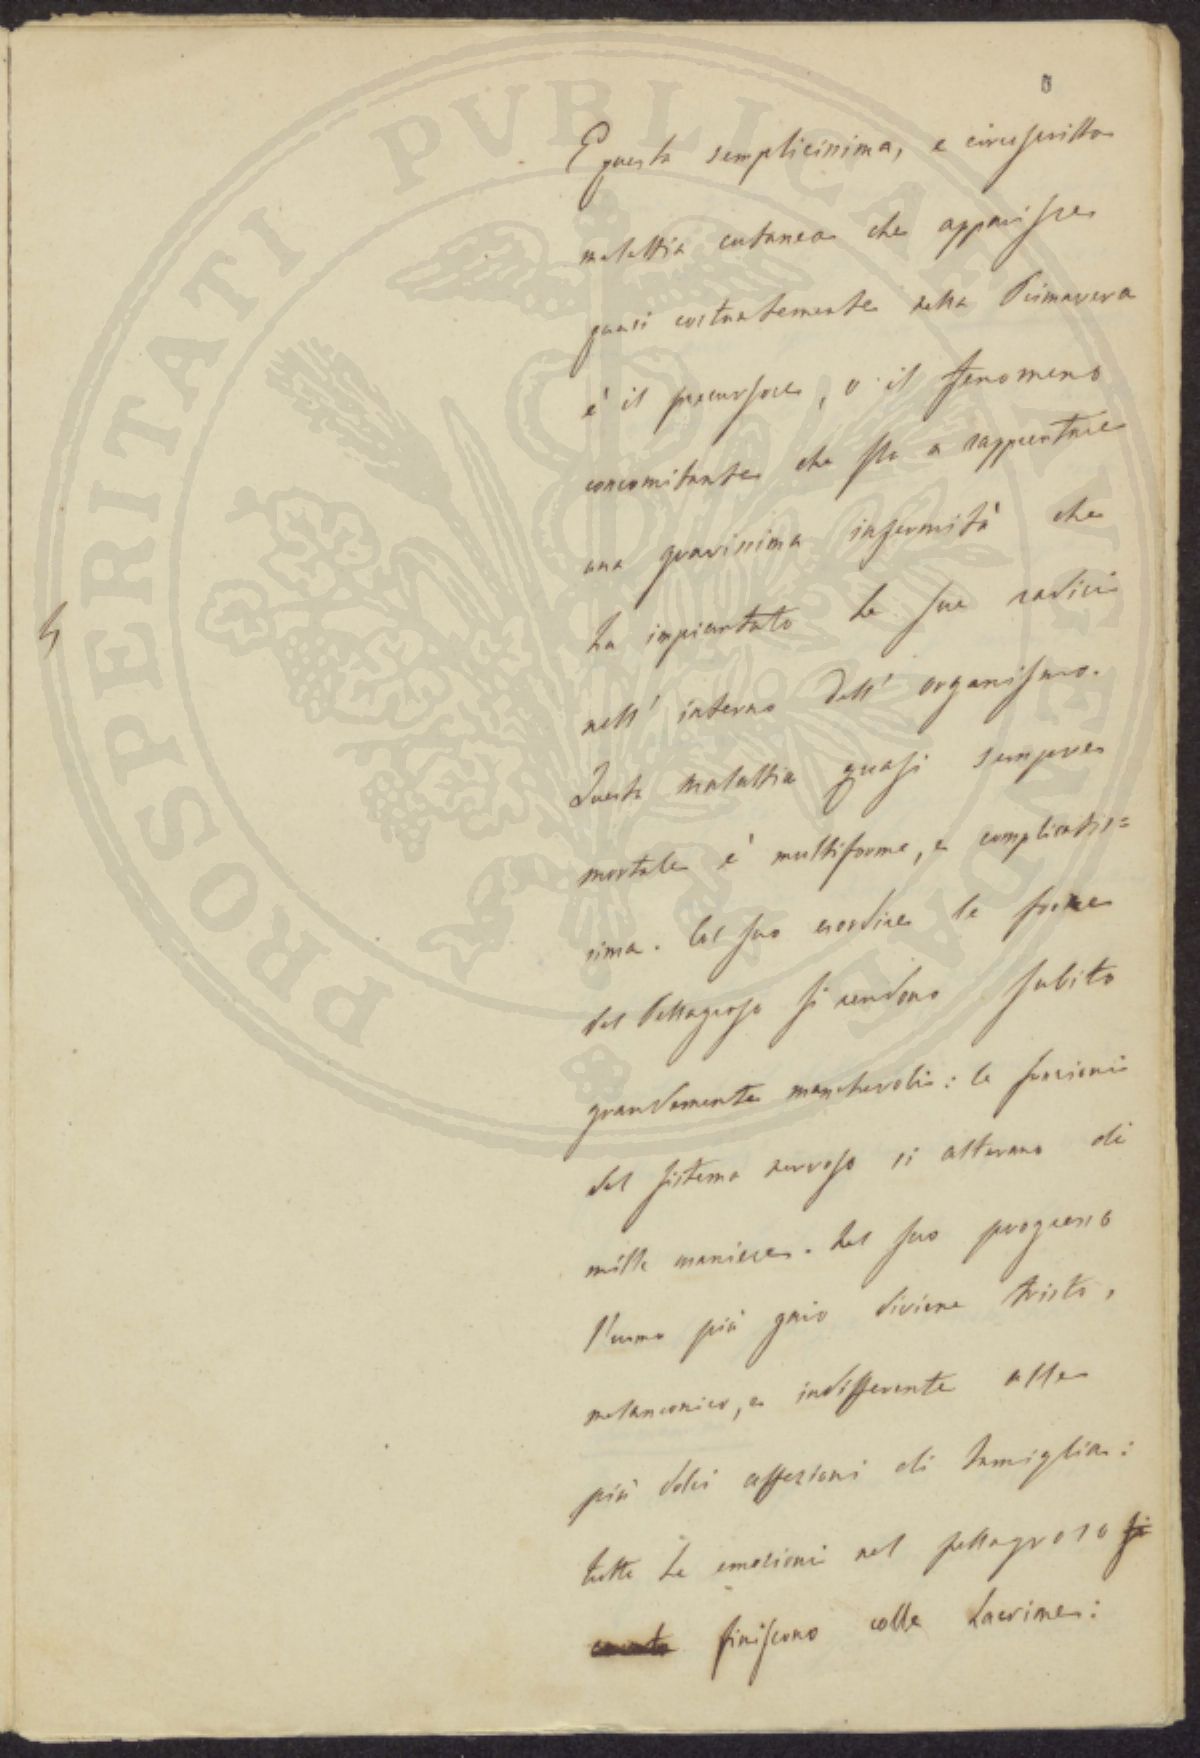 E questa semplicissima, e circoscritta
malattia cutanea che apparisce
quasi costantemente nella Primavera
è il precursore, o il fenomeno
concomitante che sta a rappresentare
una gravissima infermità che
ha impiantato le sue radici
nell' interno dell' organismo.
Questa malattia quasi sempre
mortale è multiforme, e complicatis=
sima. Col suo esordire le forze
del Pellagroso si rendono subito
grandemente manchevoli: le funzioni
del sistema nervoso si alterano di
mille maniere. Nel suo progresso
l'uomo più gaio diviene tristo,
melanconico, e indifferente alle
più dolci affezioni di famiglia:
tutte le emozioni nel pellagroso si
finiscono colle lacrime:
4
PROSPERITATI PVBLICAE AVGENDAE